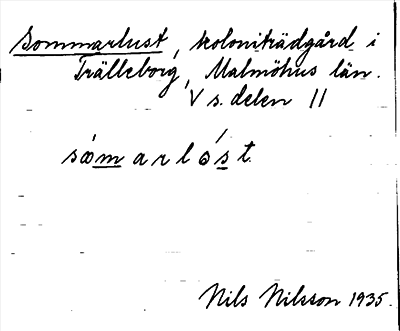 Sommarlust, koloniträdgård i
Trälleborg, Malmöhus län.
V s. delen 11
såmarlóst
Nils Nilsson 1935.